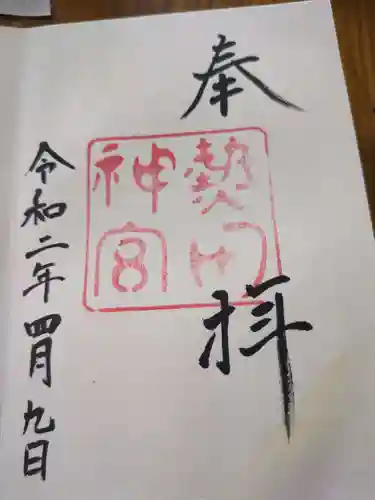 奉拝
熱田
神宮
令和二年四月九日